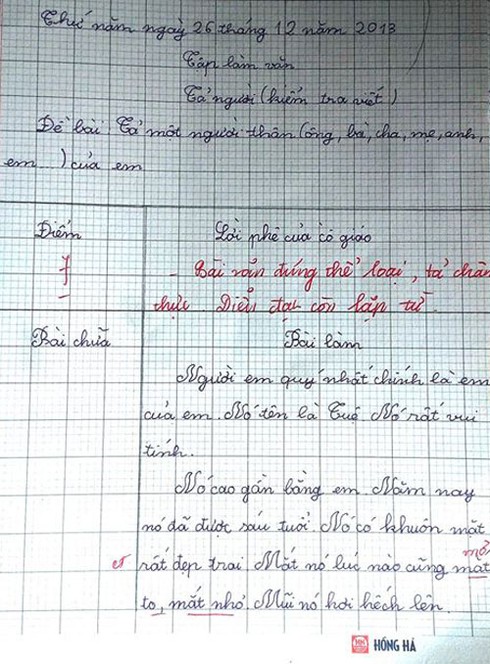 Thứ năm ngày 26 tháng 12 năm 2013
Tập làm văn
Tả người (kiểm tra viết)
Đề bài: Tả một người thân (ông, bà, cha, mẹ, anh,
em ...) của em
Điểm
Lời phê của cô giáo
7
- Bài văn đúng thể loại, tả chân
thực. Diễn đạt còn lặp từ.
Bài chữa
Bài làm
Người em quý nhất chính là em
của em. Nó tên là Tuệ. Nó rất vui
tính.
Nó cao gần bằng em. Năm nay
nó đã được sáu tuổi. Nó có khuôn mặt
rất đẹp trai. Mắt nó lúc nào cũng mắt
to, mắt nhỏ. Mũi nó hơi hếch lên.
HỒNG HÀ